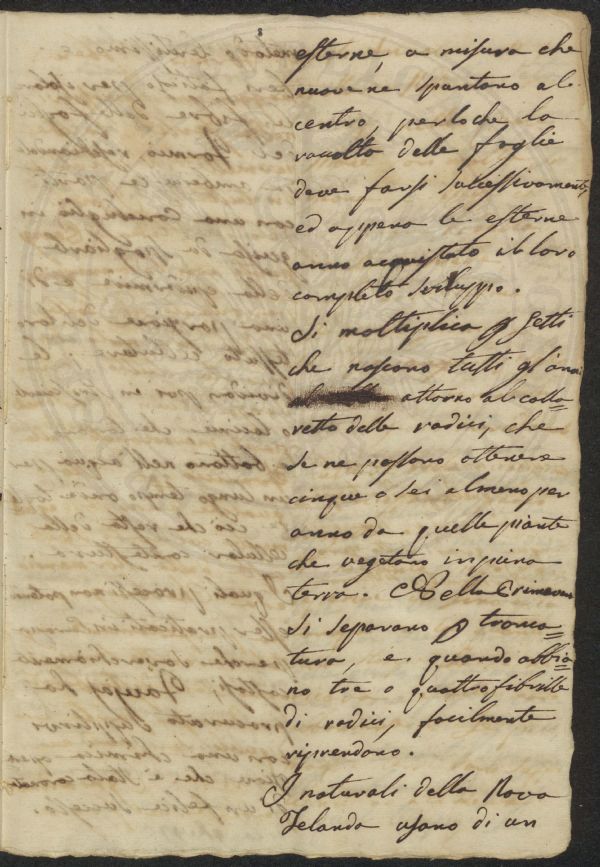 esterne, a misura che
nuove ne spuntano al
centro, perloche la
racolta delle foglie
deve farsi successivamente,
ed appena le esterne
anno acquistato il loro
completo sviluppo.
Si moltiplica p getti
che nascono tutti gl'anni
attorno al colla=
retto delle radici, che
se ne possono ottenere
cinque o sei almeno per
anno da quelle piante
che vegetano in piena
terra. Nella
si separano p tronca=
tura, e quando abbia=
no tre o quattro fibrille
di radici, facilmente
riprendono.
I naturali della Nova
Zelanda usano di un